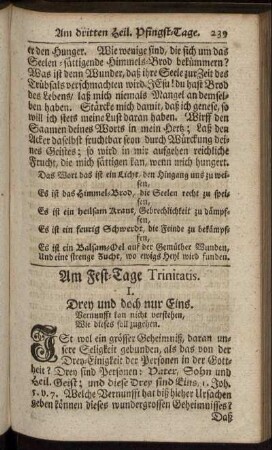 Am dritten Heil. Pfingst-Tage. 239
er den Hunger. Wie wenige sind, die sich um das
Seelen-sättigende Himmels-Brod bekümmern?
Was ist denn Wunder, daß ihre Seele zur Zeit des
Trübsals verschmachten wird? JEsu! du hast Brod
des Lebens/ laß mich niemals Mangel an demsel-
ben haben. Stärcke mich damit, daß ich genese, so
will ich stets meine Lust daran haben. Wirff den
Saamen deines Worts in mein Hertz; Laß den
Acker daselbst fruchtbar seyn durch Würckung dei-
nes Geistes; so wird in mir aufgehen reichliche
Frucht, die mich sättigen kan, wenn mich hungert.
Das Wort das ist ein Licht, den Hingang uns zu wei-
sen,
Es ist das Himmel-Brod, die Seelen recht zu spei-
sen,
Es ist ein heilsam Kraut, Gebrechlichkeit zu dämpf-
fen,
Es ist ein feurig Schwerdt, die Feinde zu bekämpf-
fen,
Es ist ein Balsam-Oel auf der Gemüther Wunden,
Und eine strenge Zucht, wo ewigs Heyl wird funden.
Am Fest-Tage Trinitatis.
I.
Drey und doch nur Eins.
Vernunfft kan nicht verstehen,
Wie dieses soll zugehen.
IST wol ein grösser Geheimniß, daran un-
sere Seligkeit gebunden, als das von der
Drey-Einigkeit der Personen in der Gott-
heit? Drey sind Personen: Vater, Sohn und
Heil. Geist; und diese Drey sind Eins. 1. Joh.
5. v. 7. Welche Vernunfft hat biß hieher Ursachen
geben können dieses wundergrossen Geheimnisses?
Daß